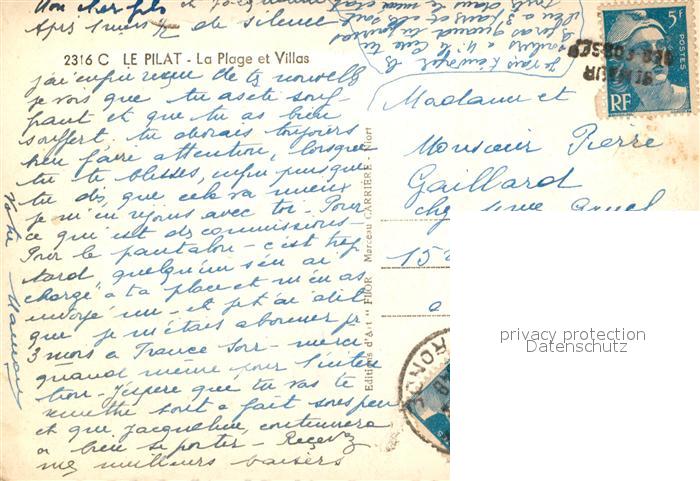 Mon cher fils et Jacqueline
Apres 1 mois ½ de silence
2316 C LE PILAT - La Plage et Villas
j'ai enfin reçue de tes nouvelles
je vois que tu as été souf-
frant et que tu as bien
souffert. tu devrais toujours
bien faire attention, lorsque
tu te blesses, enfin puisque
tu dis, que cela va mieux
je m'en rejouis avec toi - Pour
ce qui est des commissions -
Pour le pantalon - c'est trop
tard quelqu'un s'en ai
chargé à ta place et m'en as
envoyé un - et je t'ai dit
que je m'étais abonner pr
3 mois a France Soir - merci
quand même pour l'inten
tion - J'espere que tu vas te
remettre tout a fait sous peu
et que Jacqueline, continuera
a bien se porter - Recevez
mes meilleurs baisers
Votre Maman
Je vais t'envoyer
Editions d'Art " FIJOR " Marceau CARRIÈRE - Niort
Madame et
Monsieur Pierre
Gaillard
chez Mme
15
a
5F
POSTES
RF
privacy protection
Datenschutz